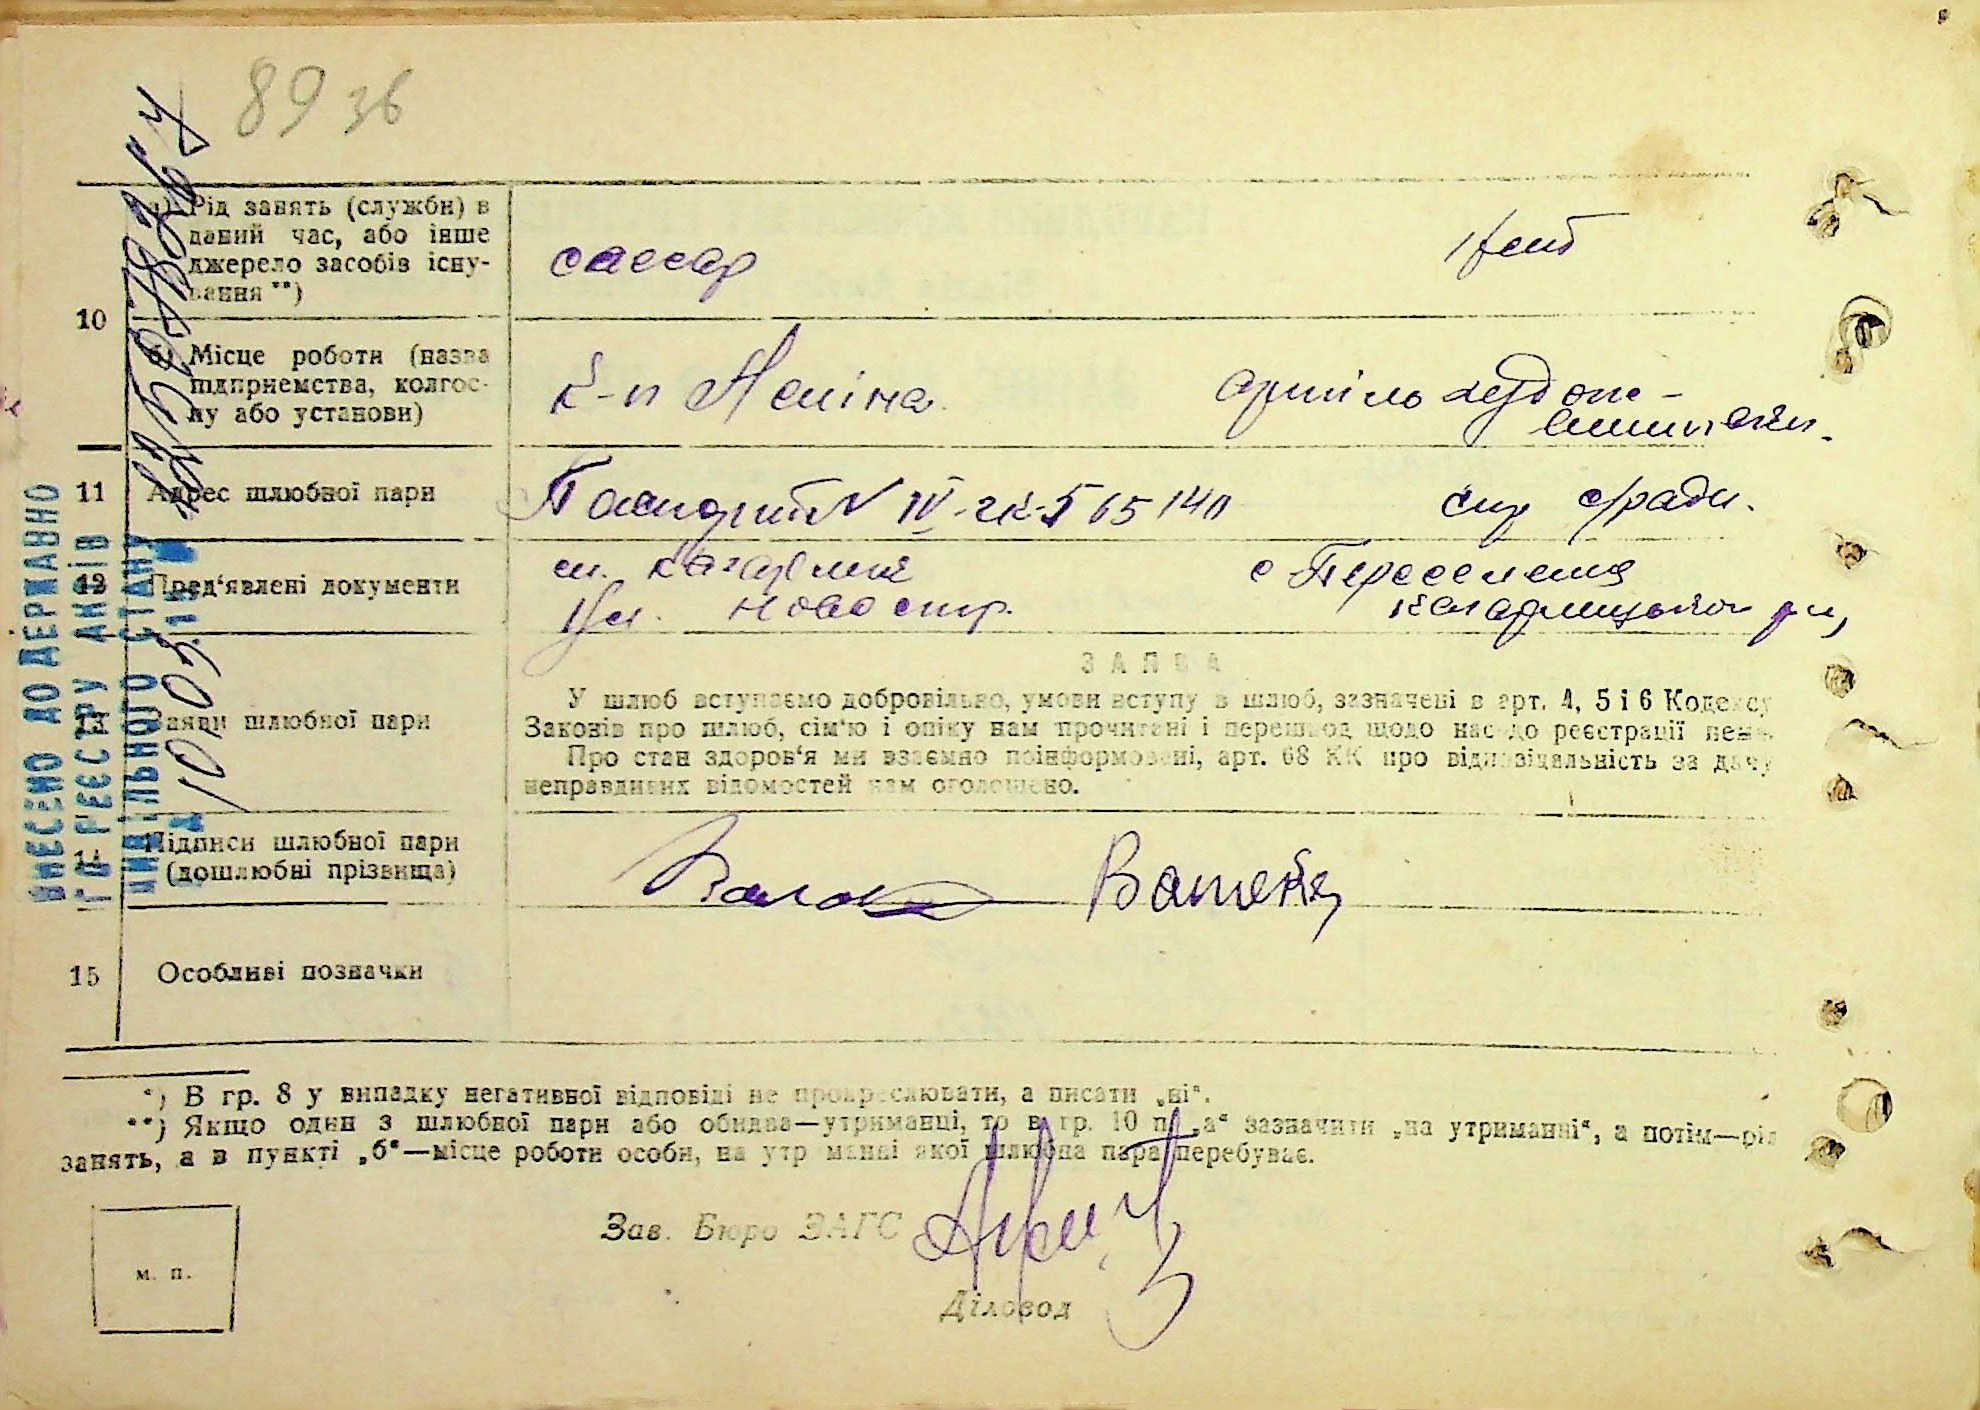 89 зв
10
а) Рід занять (служби) в
даний час, або інше
джерело засобів існу-
вання **)
слесар
б) Місце роботи (назва
підприємства, колгос-
пу або установи)
к-п Леніна
артіль художе-
11
Адрес шлюбної пари
Паспорт № IV-
с/ради.
12
Пред'явлені документи
м. Кагарлик
с Переселення
вул. Новостр.
Кагарлицького р-н,
13
Заяви шлюбної пари
ЗАЯВА
У шлюб вступаємо добровільно, умови вступу в шлюб, зазначені в арт. 4, 5 і 6 Кодексу
Законів про шлюб, сім'ю і опіку нам прочитані і перешкод щодо нас до реєстрації нема.
Про стан здоров'я ми взаємно поінформовані, арт. 68 КК про відповідальність за дачу
неправдивих відомостей нам оголошено.
14
Підписи шлюбної пари
(дошлюбні прізвища)
15
Особливі позначки
*) В гр. 8 у випадку негативної відповіді не прокреслювати, а писати „ні“.
**) Якщо один з шлюбної пари або обидва—утриманці, то в гр. 10 п. „а“ зазначити „на утриманні“, а потім—рід
занять, а в пункті „б“—місце роботи особи, на утриманні якої шлюбна пара перебуває.
Зав. Бюро ЗАГС
Діловод
м. п.
ВНЕСЕНО ДО ДЕРЖАВНО
ГО РЕЄСТРУ АКТІВ
ЦИВІЛЬНОГО СТАНУ